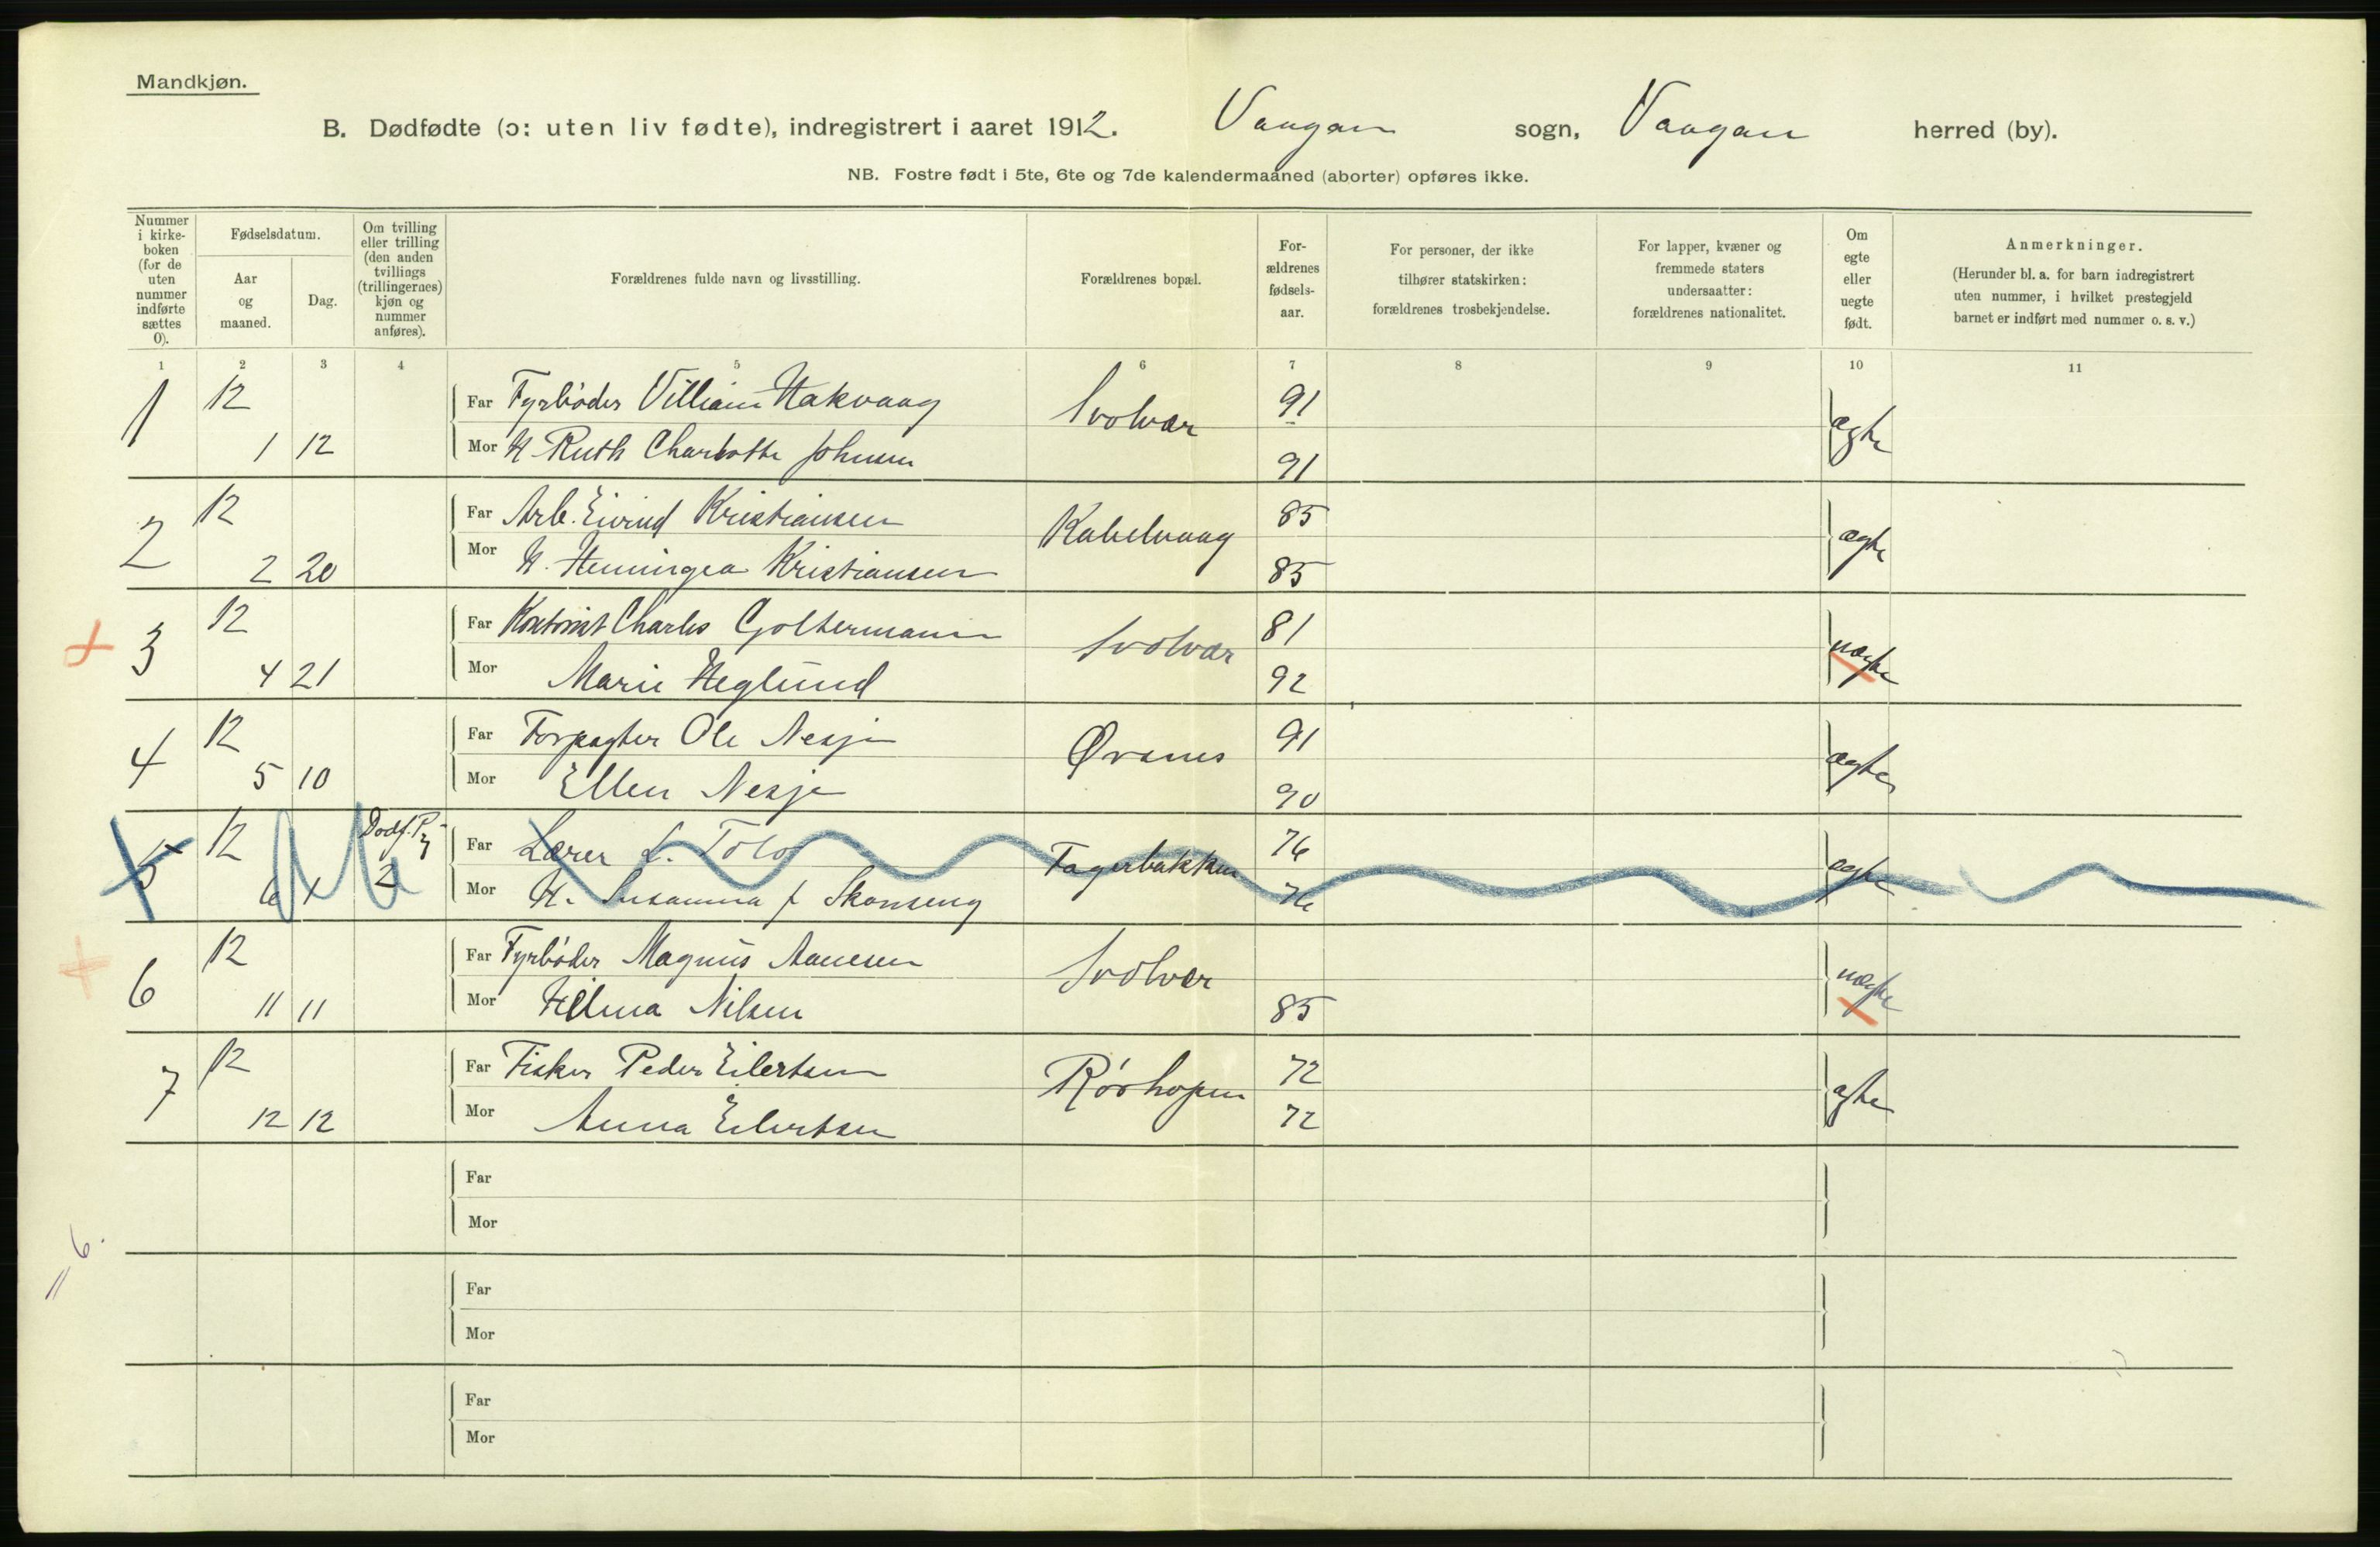 Mandkjøn.
B. Dødfødte (ɔ: uten liv fødte), indregistrert i aaret 1912. Vaagan sogn, Vaagan herred (by).
NB. Fostre født i 5te, 6te og 7de kalendermaaned (aborter) opføres ikke.
Nummer
i kirke-
boken
(for de
uten
nummer
indførte
sættes
0).
Fødselsdatum.
Aar
og
maaned.
Dag.
Om tvilling
eller trilling
(den anden
tvillings
(trillingernes)
kjøn og
nummer
anføres).
Forældrenes fulde navn og livsstilling.
Forældrenes bopæl.
For-
ældrenes
fødsels-
aar.
For personer, der ikke
tilhører statskirken:
forældrenes trosbekjendelse.
For lapper, kvæner og
fremmede staters
undersaatter:
forældrenes nationalitet.
Om
egte
eller
uegte
født.
Anmerkninger.
(Herunder bl. a. for barn indregistrert
uten nummer, i hvilket prestegjeld
barnet er indført med nummer o. s. v.)
1 2 3 4 5 6 7 8 9 10 11
1 12 Far Fyrbøder Villiam Hakvaag Svolvær 91 ægte
1 12 Mor H. Ruth Charlotte Johnsen 91
2 12 Far Arb. Eivind Kristiansen Kabelvaag 85 ægte
2 20 Mor H. Henningea Kristiansen 85
3 12 Far Kontorist Charles Goltermann Svolvær 81 uægte
4 21 Mor Marie Heglund 92
4 12 Far Forpagter Ole Nesje Ørsnes 91 ægte
5 10 Mor Ellen Nesje 90
5 12 Far Lærer L. Tolo Fagerbakken 76 ægte
6 2 Mor H. Susanna f Skonseng 76
6 12 Far Fyrbøder Magnus Aanesen Svolvær uægte
11 11 Mor Hilma Nilsen 85
7 12 Far Fisker Peder Eilertsen Rørhopen 72 ægte
12 12 Mor Anna Eilertsen 72
Far
Mor
6.
Far
Mor
Far
Mor